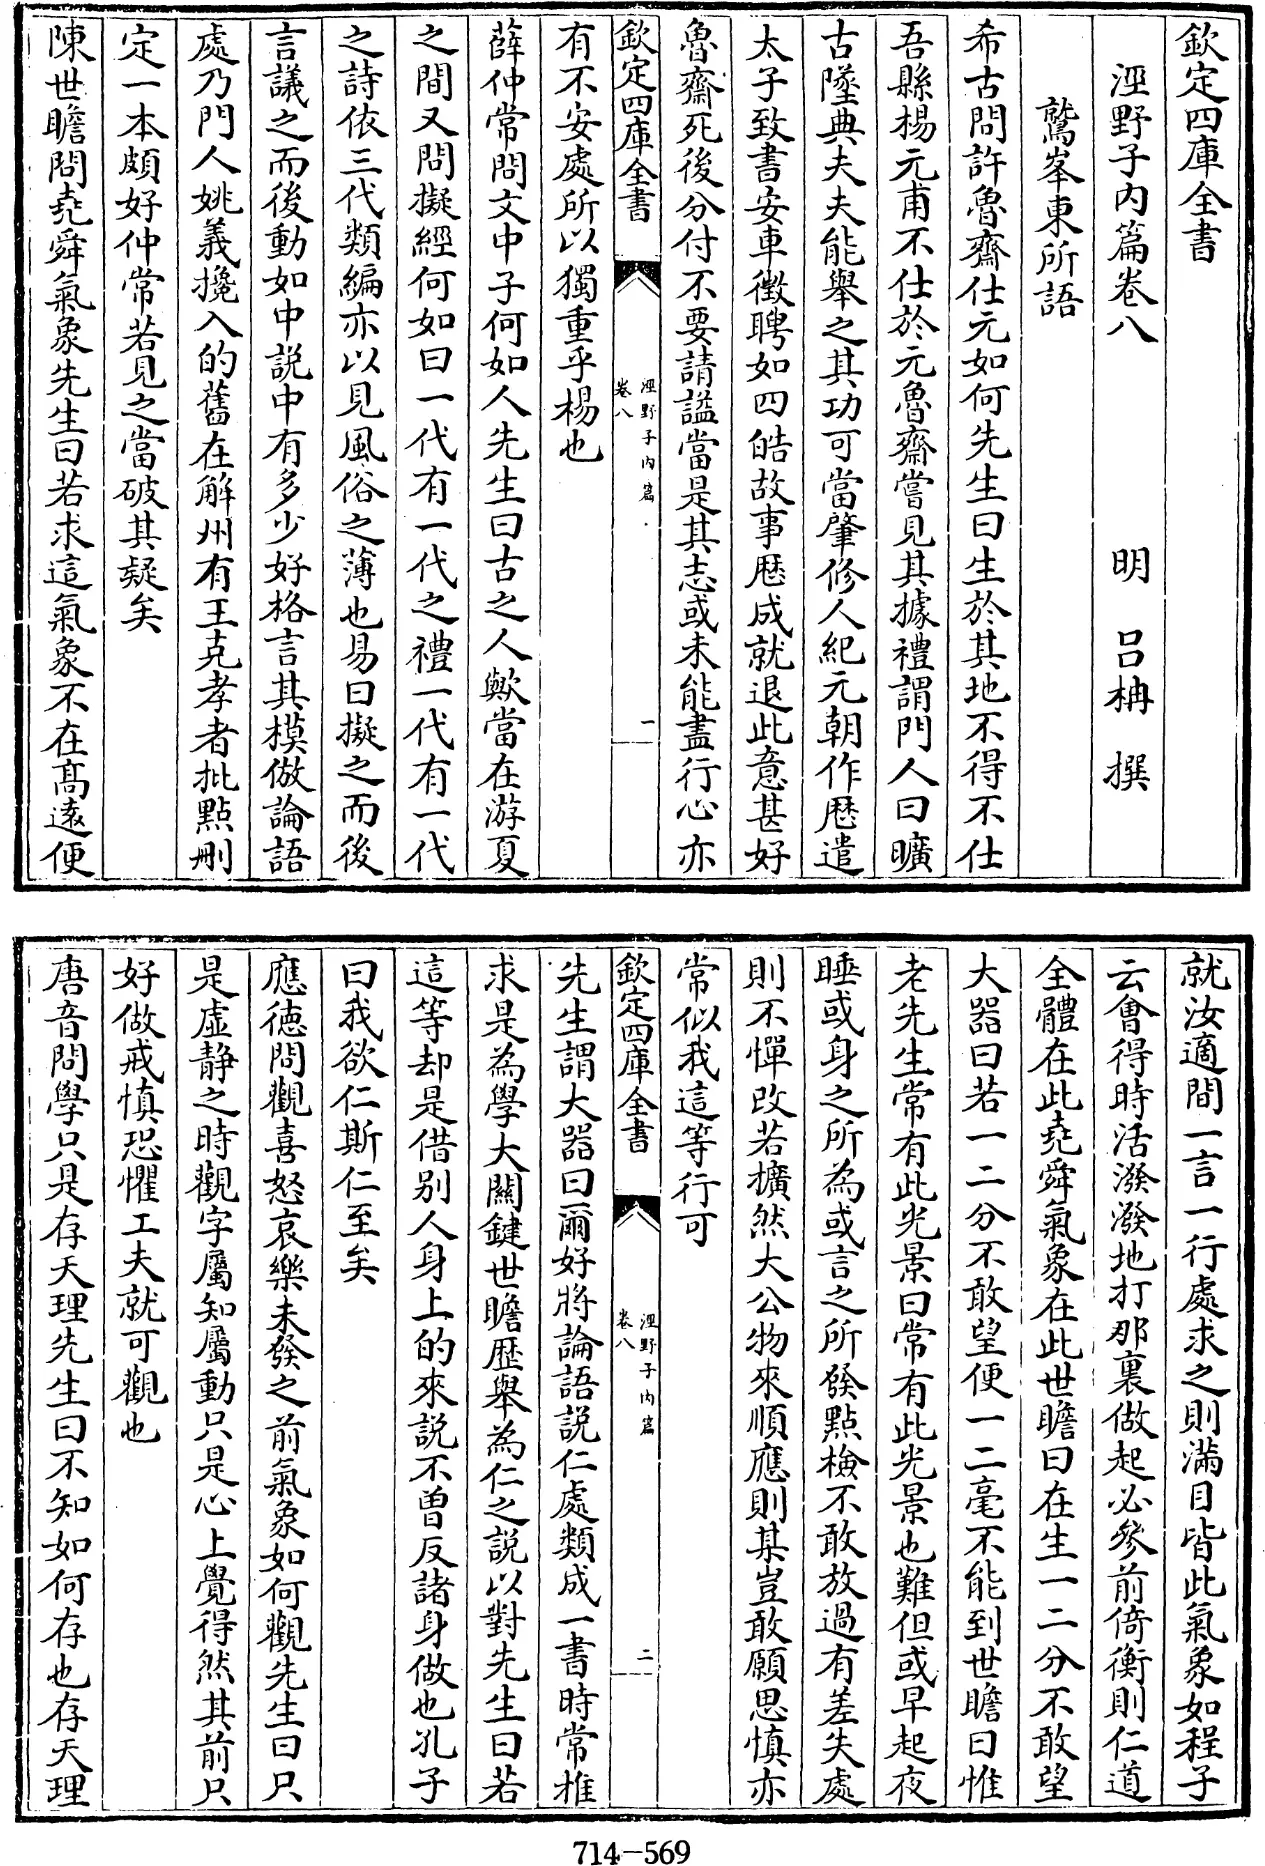 欽定四庫全書
涇野子内篇卷八
明　呂柟　撰
鷲峯東所語
希古問許魯齋仕元如何先生曰生於其地不得不仕
吾縣楊元甫不仕於元魯齋嘗見其據禮謂門人曰曠
古墜典夫夫能舉之其功可當肇修人紀元朝作歴遣
太子致書安車徵聘如四皓故事歴成就退此意甚好
魯齋死後分付不要請謚當是其志或未能盡行心亦
欽定四庫全書
涇野子内篇
卷八
一
有不安處所以獨重乎楊也
薛仲常問文中子何如人先生曰古之人歟當在游夏
之間又問擬經何如曰一代有一代之禮一代有一代
之詩依三代類編亦以見風俗之薄也易曰擬之而後
言議之而後動如中説中有多少好格言其模倣論語
處乃門人姚義攙入的舊在解州有王克孝者批點刪
定一本頗好仲常若見之當破其疑矣
陳世瞻問堯舜氣象先生曰若求這氣象不在髙逺便
就汝適間一言一行處求之則滿目皆此氣象如程子
云會得時活潑潑地打那裏做起必參前倚衡則仁道
全體在此堯舜氣象在此世瞻曰在生一二分不敢望
大器曰若一二分不敢望便一二毫不能到世瞻曰惟
老先生常有此光景曰常有此光景也難但或早起夜
睡或身之所為或言之所發點檢不敢放過有差失處
則不憚改若擴然大公物來順應則某豈敢願思慎亦
常似我這等行可
欽定四庫全書
涇野子内篇
卷八
二
先生謂大器曰爾好將論語説仁處類成一書時常推
求是為學大關鍵世瞻歴舉為仁之説以對先生曰若
這等却是借别人身上的來説不曽反諸身做也孔子
曰我欲仁斯仁至矣
應徳問觀喜怒哀樂未發之前氣象如何觀先生曰只
是虚静之時觀字屬知屬動只是心上覺得然其前只
好做戒慎恐懼工夫就可觀也
唐音問學只是存天理先生曰不知如何存也存天理
714-569